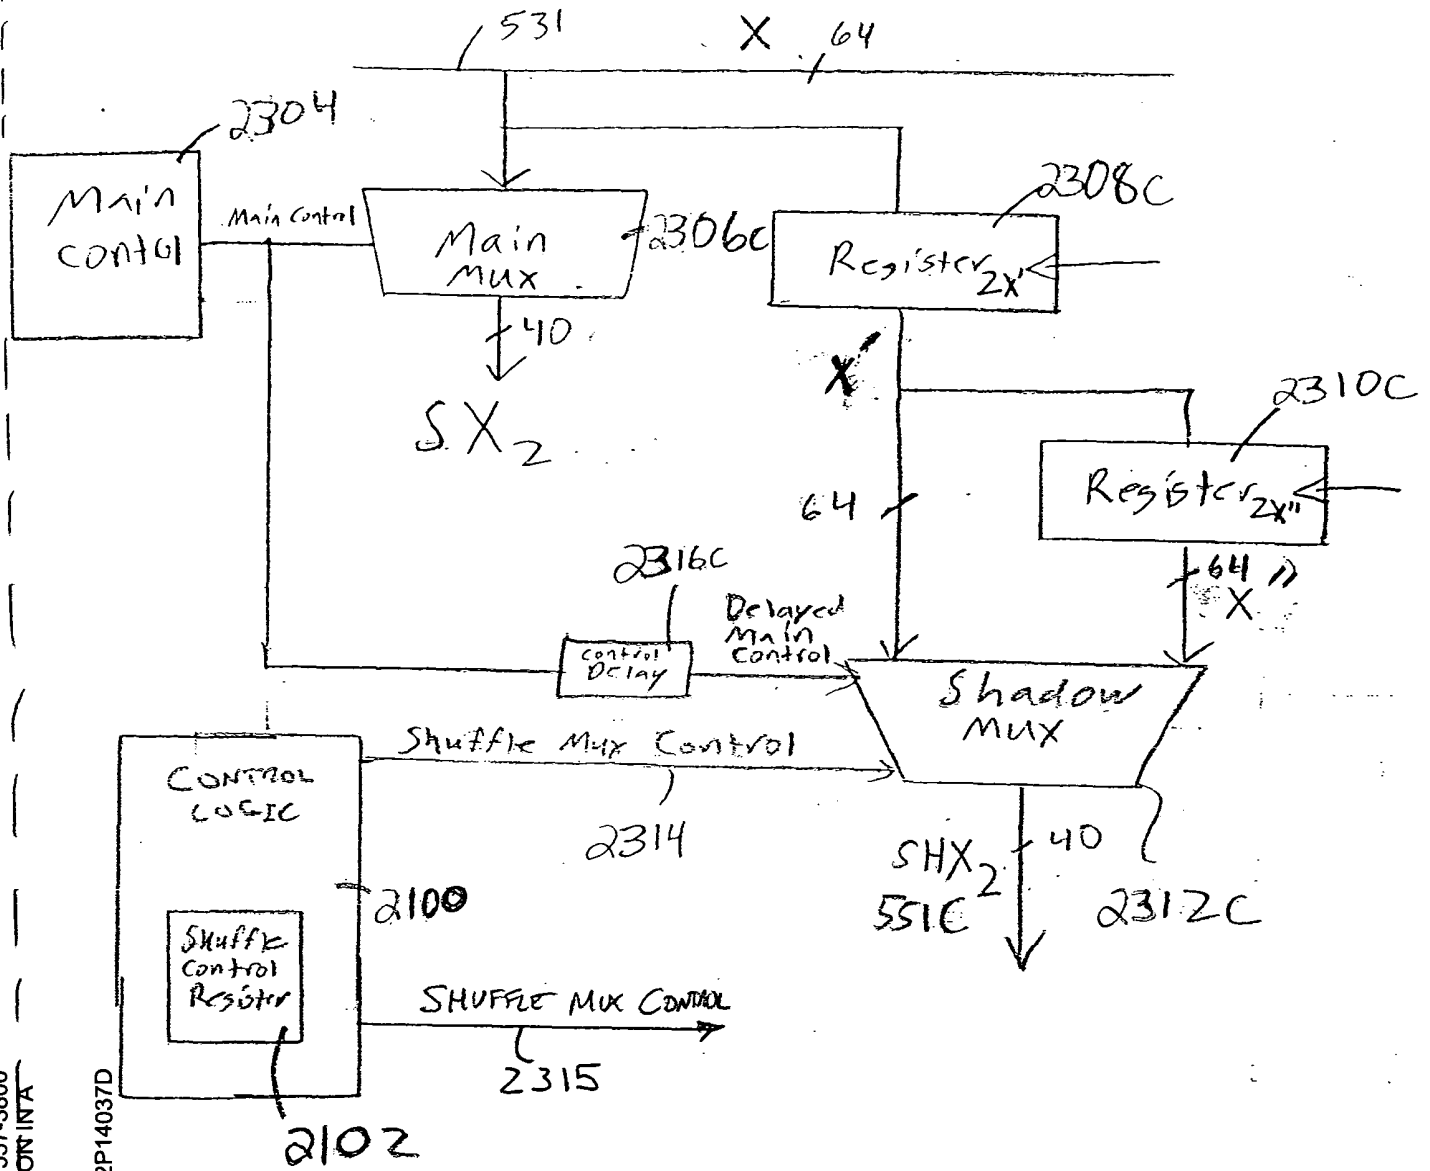 531
X
64
2304
Main
contol
Main Control
Main
Mux
2306C
2308C
Register 2X'
40
SX2
X'
2310C
Register 2X"
64
64
X"
2316C
Control
Delay
Delayed
Main
Control
Shadow
MUX
Shuffle Mux Control
2314
CONTROL
LOGIC
2100
SHX2
551C
40
2312C
Shuffle
Control
Register
SHUFFLE MUX CONTROL
2315
2102
ON IN A
2P14037D